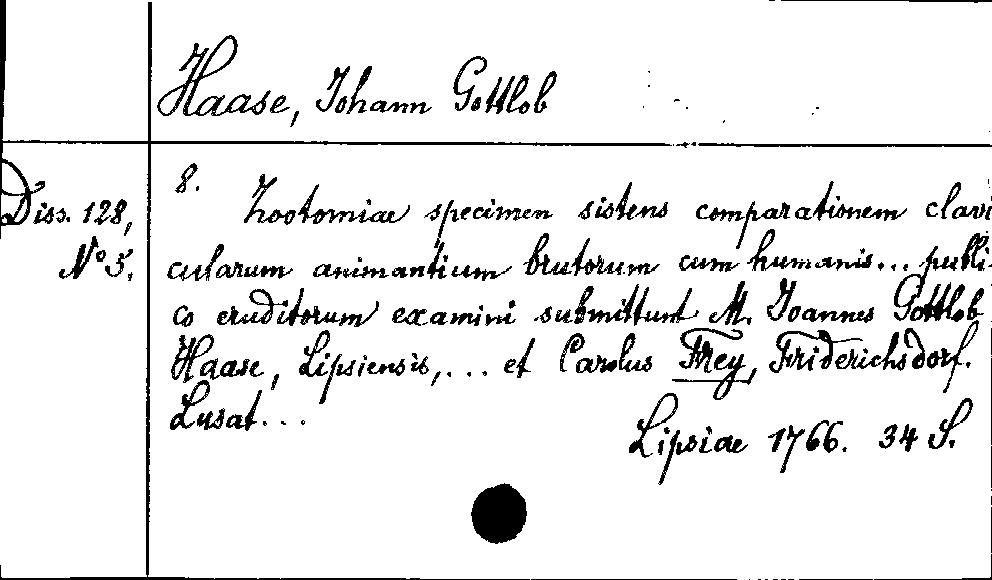 Haase, Johann Gottlob
Diss. 128,
No 5.
8.
Zootomiae specimen sistens comparationem clavi
cularum animantium brutorum cum humanis... publi-
co eruditorum examini submittunt M. Joannes Gottlob
Haase, Lipsiensis,... et Carolus Frey, Friderichsdorf.
Lusat...
Lipsiae 1766. 34 S.